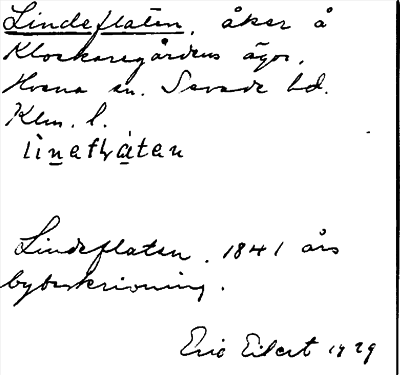 Lindeflaten, åker å
Klockaregårdens ägor,
Hvena sn. Sevede hd.
Klm. l.
Lindeflaten, 1841 års
bybeskrivning.
Eric Eilert 1929